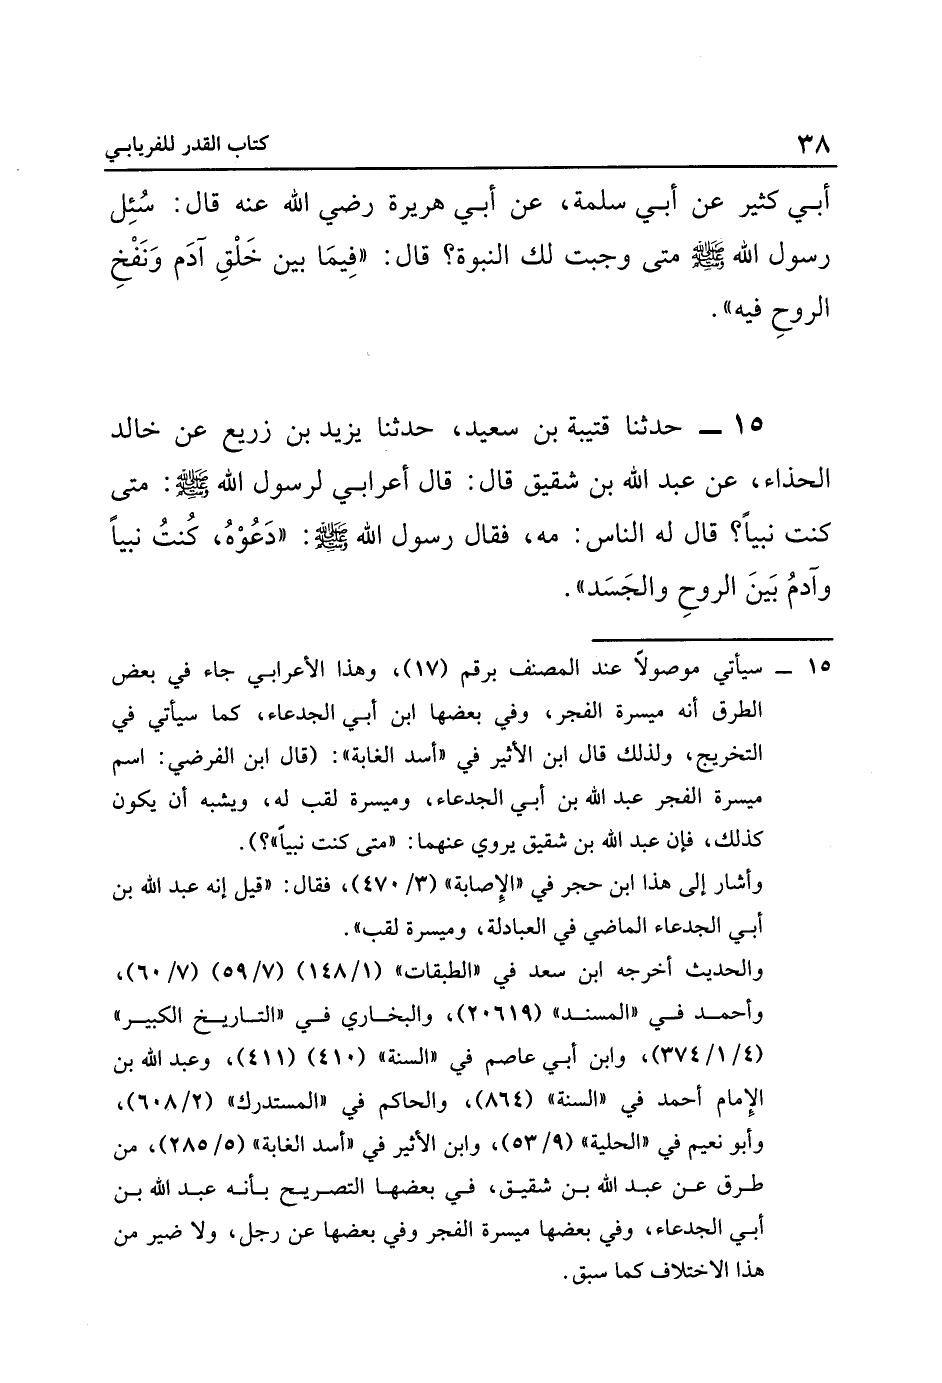 ٣٨ كتاب القدر للفريابي
أبي كثير عن أبي سلمة، عن أبي هريرة رضي الله عنه قال: سُئِل
رسول الله ﷺ متى وجبت لك النبوة؟ قال: «فِيمَا بين خَلْقِ آدَم وَنَفْخِ
الروحِ فيه».
١٥ ــ حدثنا قتيبة بن سعيد، حدثنا يزيد بن زريع عن خالد
الحذاء، عن عبد الله بن شقيق قال: قال أعرابي لرسول الله ﷺ: متى
كنت نبياً؟ قال له الناس: مه، فقال رسول الله ﷺ: «دَعُوْهُ، كُنتُ نبياً
وآدمُ بَينَ الروحِ والجَسَد».
١٥ ــ سيأتي موصولاً عند المصنف برقم (١٧)، وهذا الأعرابي جاء في بعض
الطرق أنه ميسرة الفجر، وفي بعضها ابن أبي الجدعاء، كما سيأتي في
التخريج، ولذلك قال ابن الأثير في «أسد الغابة»: (قال ابن الفرضي: اسم
ميسرة الفجر عبد الله بن أبي الجدعاء، وميسرة لقب له، ويشبه أن يكون
كذلك، فإن عبد الله بن شقيق يروي عنهما: «متى كنت نبياً»؟).
وأشار إلى هذا ابن حجر في «الإصابة» (٣/ ٤٧٠)، فقال: «قيل إنه عبد الله بن
أبي الجدعاء الماضي في العبادلة، وميسرة لقب».
والحديث أخرجه ابن سعد في «الطبقات» (١٤٨/١) (٥٩/٧) (٦٠/٧)،
وأحمد في «المسند» (٢٠٦١٩)، والبخاري في «التاريخ الكبير»
(٤/ ١/ ٣٧٤)، وابن أبي عاصم في «السنة» (٤١٠) (٤١١)، وعبد الله بن
الإمام أحمد في «السنة» (٨٦٤)، والحاكم في «المستدرك» (٦٠٨/٢)،
وأبو نعيم في «الحلية» (٥٣/٩)، وابن الأثير في «أسد الغابة» (٥/ ٢٨٥)، من
طرق عن عبد الله بن شقيق، في بعضها التصريح بأنه عبد الله بن
أبي الجدعاء، وفي بعضها ميسرة الفجر وفي بعضها عن رجل، ولا ضير من
هذا الاختلاف كما سبق.